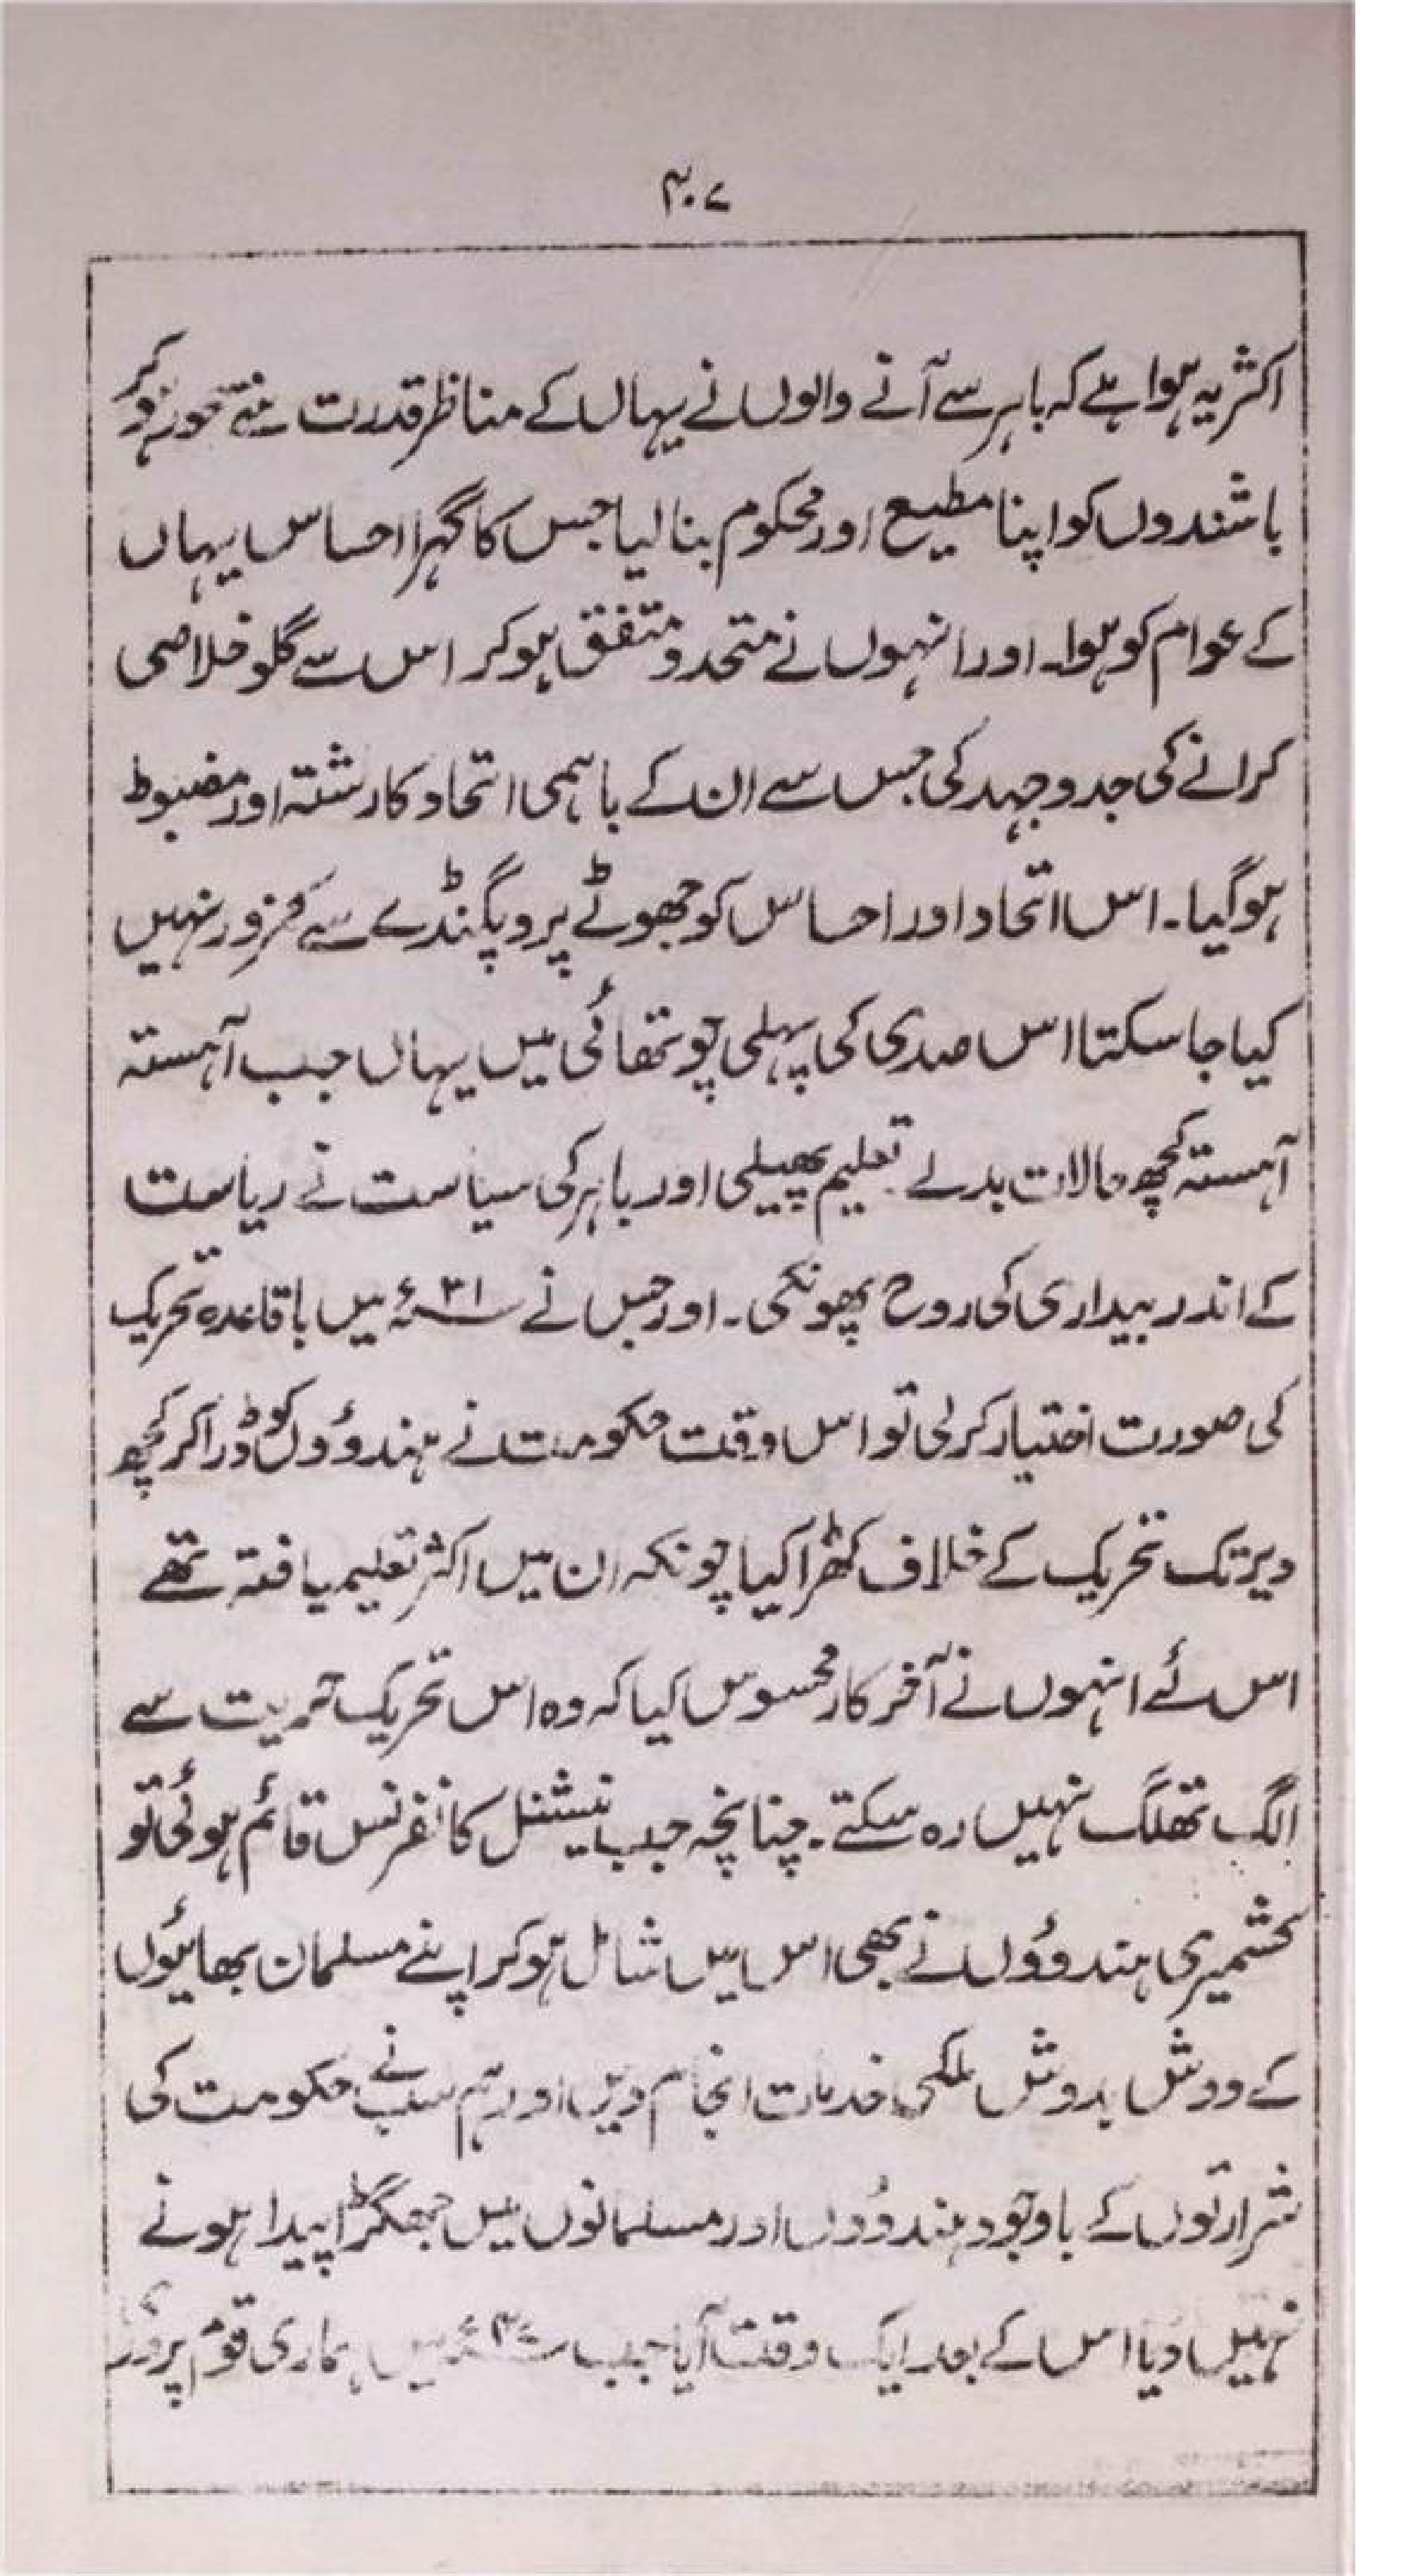 ۳۰۷
اکثر یہ ہوا ہے کہ باہر سے آنے والوں نے یہاں کے مناظر قدرت سے مسحور ہو کر
باشندوں کو اپنا مطیع اور محکوم بنا لیا جس کا گہرا احساس یہاں
کے عوام کو ہوا۔ اور انہوں نے متحد و متفق ہو کر اس سے گلو خلاصی
کرانے کی جدوجہد کی جس سے ان کے باہمی اتحاد کا رشتہ اور مضبوط
ہو گیا۔ اس اتحاد اور احساس کو جھوٹے پروپگنڈے سے کمزور نہیں
کیا جا سکتا اس صدی کی پہلی چوتھائی میں یہاں جب آہستہ
آہستہ کچھ حالات بدلے تعلیم پھیلی اور باہر کی سیاست نے ریاست
کے اندر بیداری کی روح پھونکی۔ اور جس نے ۳۱ء میں باقاعدہ تحریک
کی صورت اختیار کر لی تو اس وقت حکومت نے ہندوؤں کو ڈرا کر کچھ
دیر تک تحریک کے خلاف کھڑا کیا چونکہ ان میں اکثر تعلیم یافتہ تھے
اس لئے انہوں نے آخر کار محسوس کیا کہ وہ اس تحریک حریت سے
الگ تھلگ نہیں رہ سکتے۔ چنانچہ جب نیشنل کانفرنس قائم ہوئی تو
کشمیری ہندوؤں نے بھی اس میں شامل ہو کر اپنے مسلمان بھائیوں
کے دوش بدوش ملکی خدمات انجام دیں اور ہم سب نے حکومت کی
شرارتوں کے باوجود ہندوؤں اور مسلمانوں میں جھگڑا پیدا ہونے
نہیں دیا اس کے بعد ایک وقت آیا جب ۴۷ء میں ہماری قوم پرور